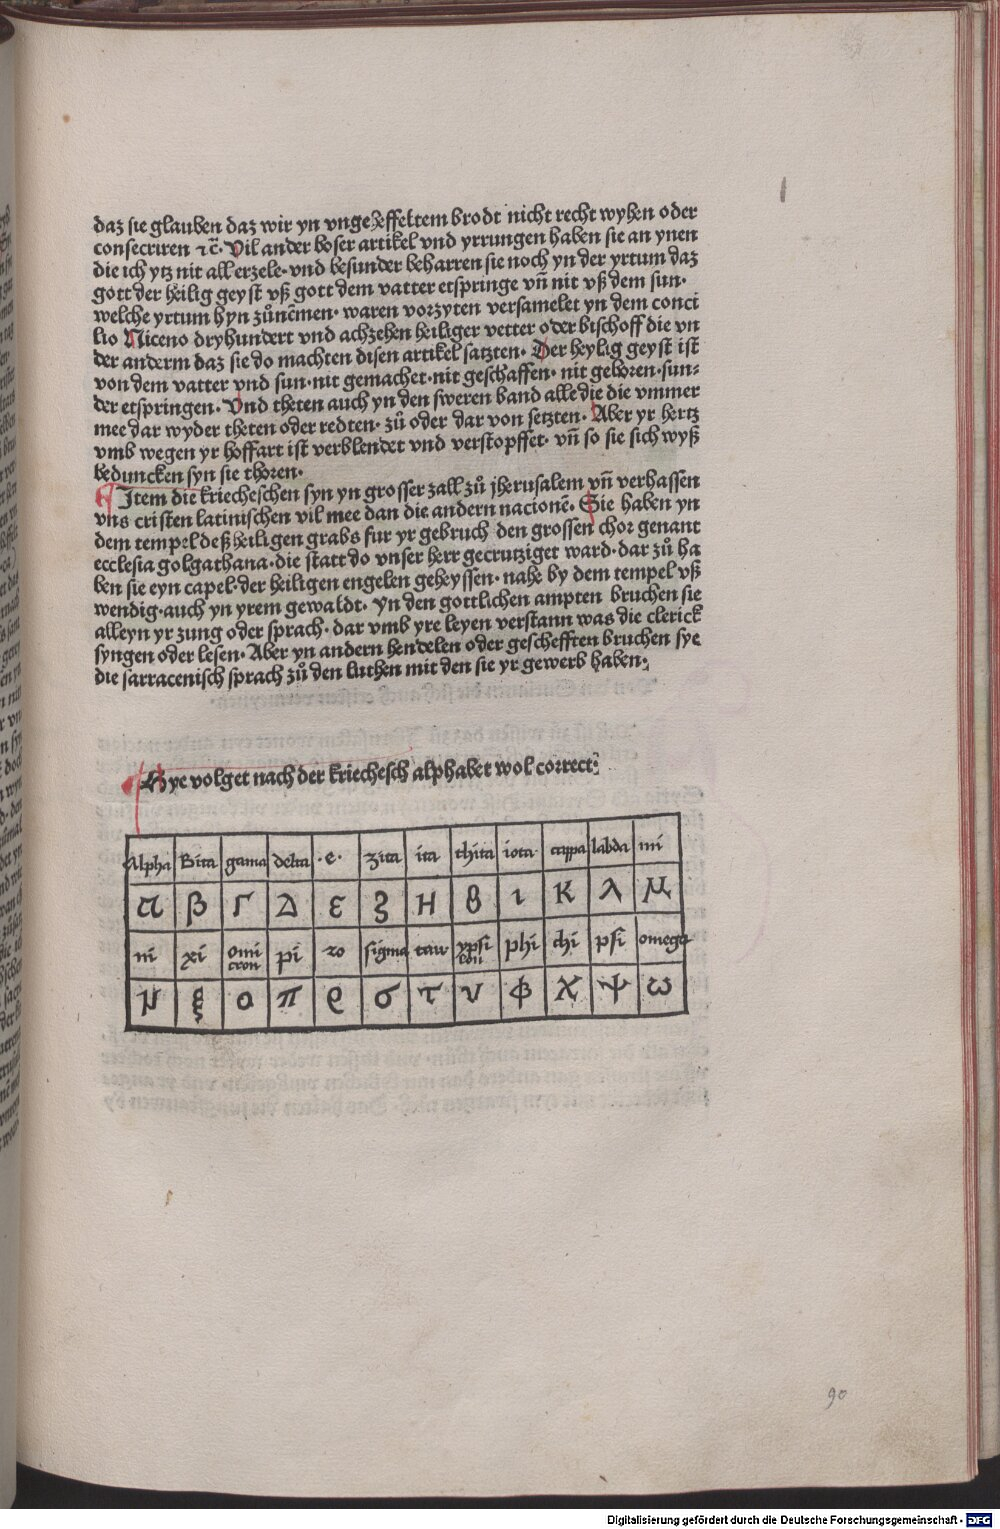 daz sie glauben daz wir yn vngeheffeltem brodt nicht recht wyhen oder
consecriren ⁊c̄. Vil ander boser artikel vnd yrrungen haben sie an ynen
die ich ytz nit all erzele· vnd besunder beharren sie noch yn der yrtum daz
gott der heilig geyst vß gott dem vatter etspringe vn̄ nit vß dem sun·
welche yrtum hyn zůnēmen· waren vorzyten versamelet yn dem conci
lio Niceno dryhundert vnd achzehen heiliger vetter oder bischoff die vn
der anderm daz sie do machten disen artikel satzten· Der heylig geyst ist
von dem vatter vnd sun· nit gemachet· nit geschaffen· nit geboren· sun⸗
der etspringen· Vnd theten auch yn den sweren band alle die die ymmer
mee dar wyder theten oder redten· zů oder dar von setzten· Aber yr hertz
vmb wegen yr hoffart ist verblendet vnd verstopffet· vn̄ so sie sich wyß
beduncken syn sie thoren·
Item die kriecheschen syn yn grosser zall zů jherusalem vn̄ verhassen
vns cristen latinischen vil mee dan die andern nacionē· Sie haben yn
dem tempel deß heiligen grabs fur yr gebruch den grossen chor genant
ecclesia golgathana· die statt do vnser herr gecrutziget ward· dar zů ha
ben sie eyn capel· der heiligen engelen geheyssen· nahe by dem tempel vß
wendig· auch yn yrem gewaldt· Yn den gottlichen ampten bruchen sie
alleyn yr zung oder sprach· dar vmb yre leyen verstann was die clerick
syngen oder lesen· Aber yn andern hendelen oder geschefften bruchen sye
die sarracenisch sprach zů den luthen mit den sie yr gewerb haben·
Hye volget nach der kriechesch alphabet wol correct·
Alpha Bita gama delta ·e· zita ita thita iota cappa labda mi
α β Γ Δ ε ξ H θ ι κ λ μ
ni xi omicron pi ro sigma tau ypsilon phi chi psi omega
ν ξ ο π ρ σ τ υ φ χ ψ ω
90
Digitalisierung gefördert durch die Deutsche Forschungsgemeinschaft - DFG